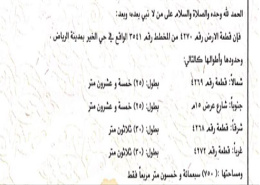 الحمد لله وحده والصلاة والسلام على من لا نبي بعده وبعد:
فإن قطعة الارض رقم ٤٢٧٠ من المخطط رقم ٣٠٤١ الواقع في حي الخير بمدينة الرياض.
وحدودها وأطوالها كالتالي:
شمالاً: قطعة رقم ٤٢٦٩ بطول: (٢٥) خمسة و عشرون متر
جنوباً: شارع عرض ١٥م بطول: (٢٥) خمسة و عشرون متر
شرقاً: قطعة رقم ٤٢٦٨ بطول: (٣٠) ثلاثون متر
غرباً: قطعة رقم ٤٢٧٢ بطول: (٣٠) ثلاثون متر
ومساحتها: (٧٥٠) سبعمائة و خمسون متر مربعاً فقط